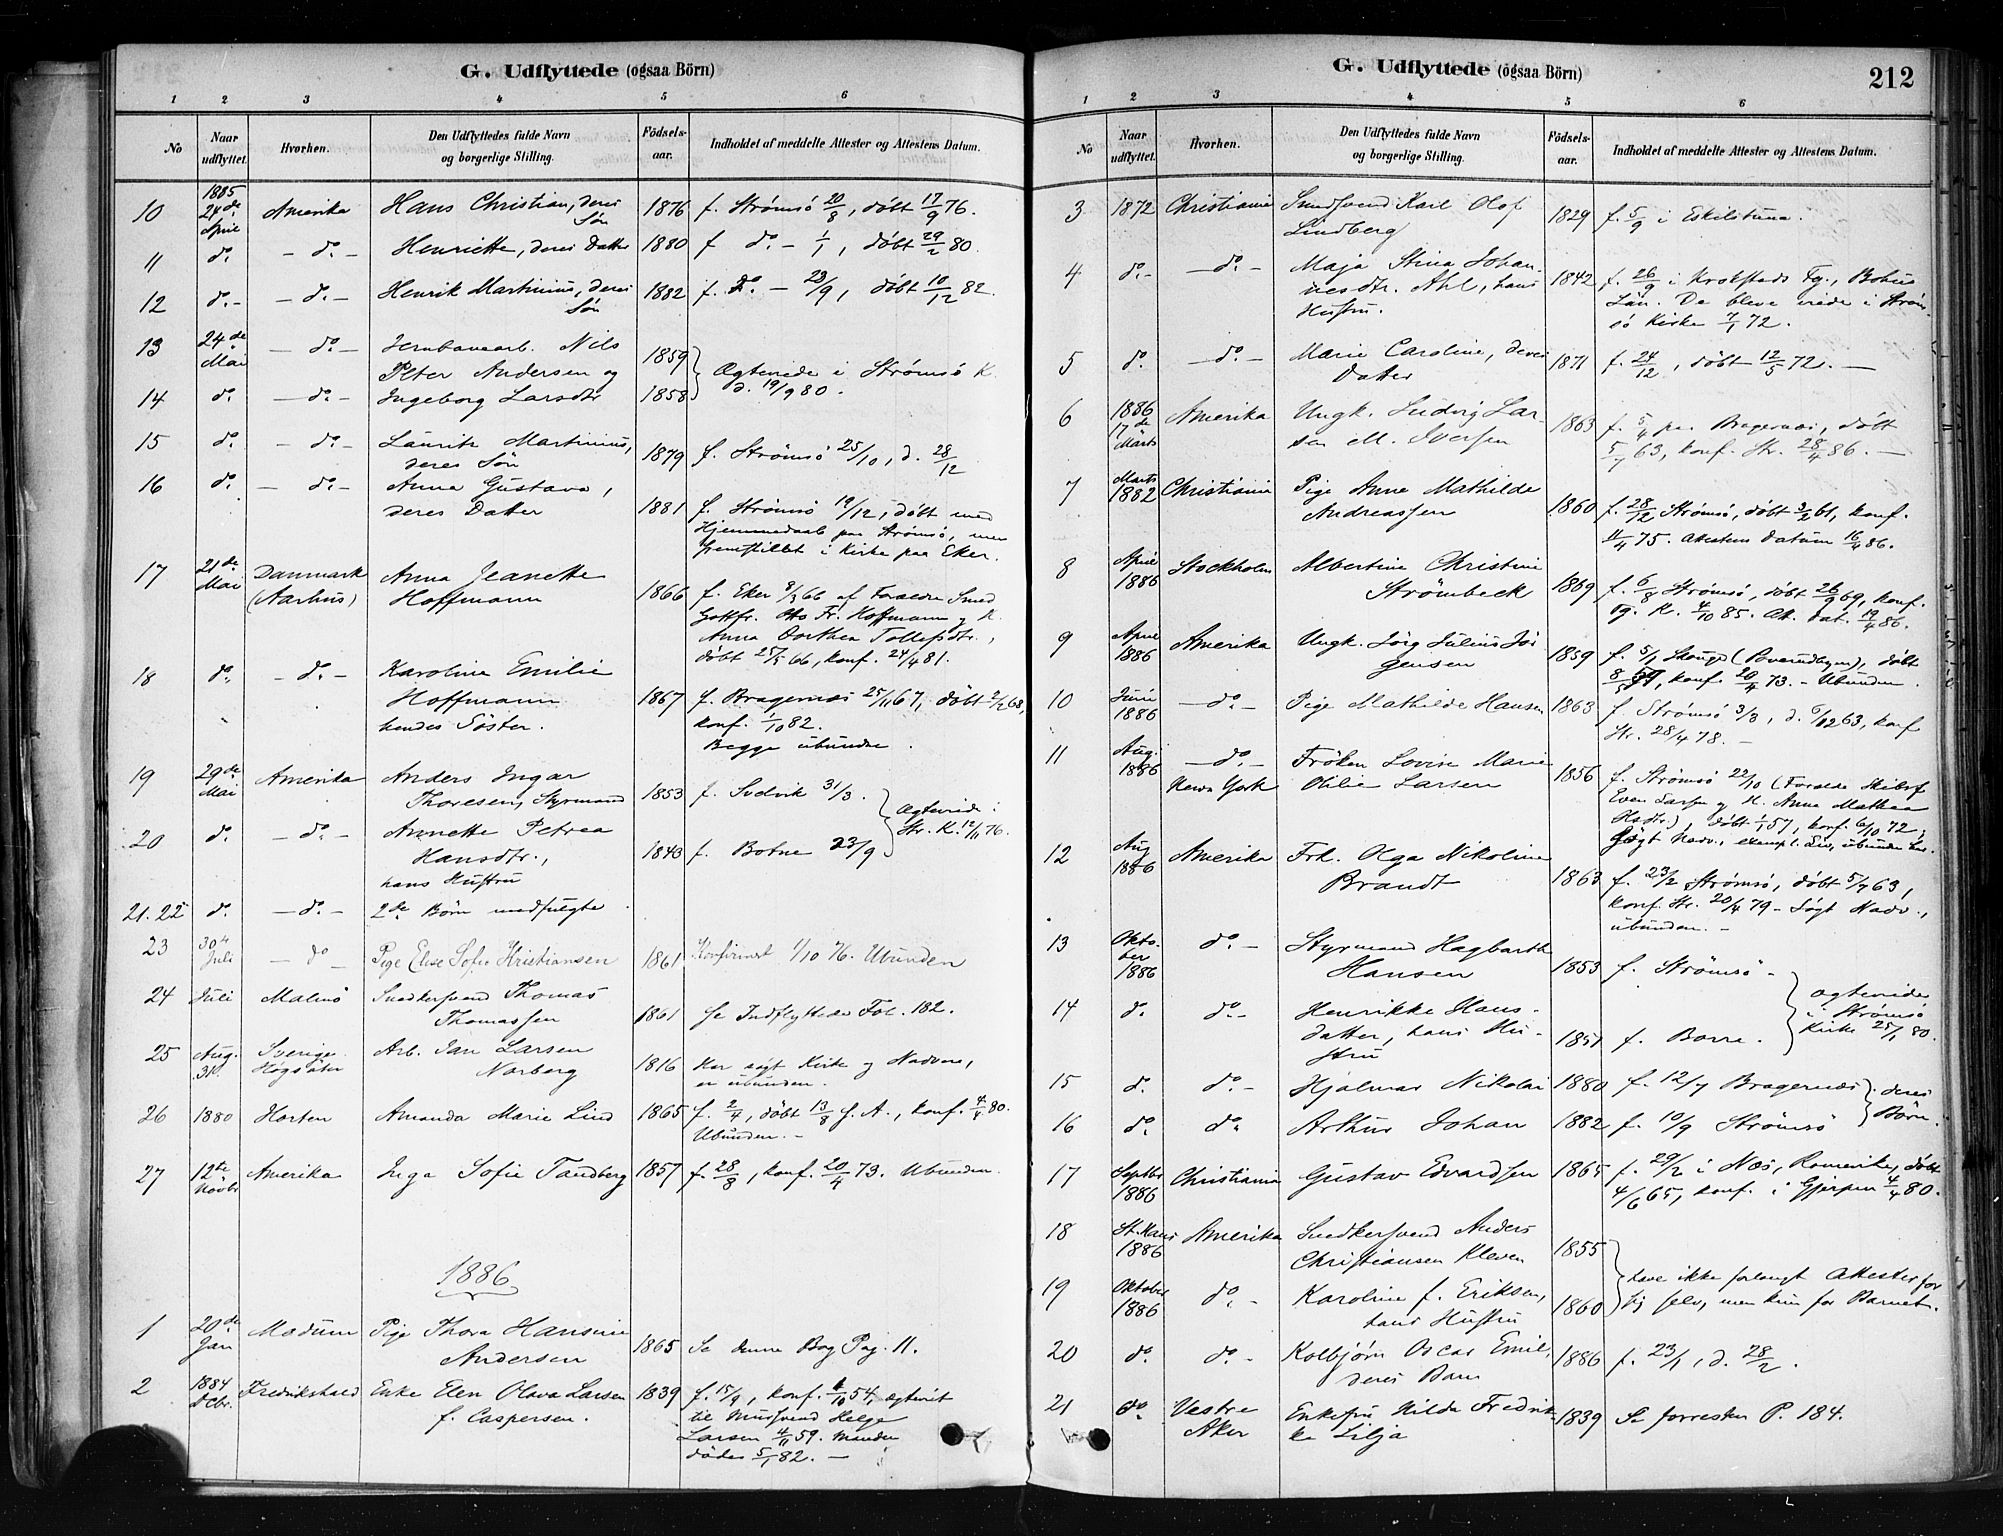 G. Udflyttede (ogsaa Börn)
1 2 3 4 5 6
No
Naar udflyttet.
Hvorhen.
Den Udflyttedes fulde Navn og borgerlige Stilling.
Födsels-aar.
Indholdet af meddelte Attester og Attestens Datum.
10 1885 24de April Amerika Hans Christian, deres Søn 1876 f. Strømsö 20/8, döbt 17/9 76.
11 do. – do. – Henriette, deres Datter 1880 f do. – 1/1, döbt 29/2 80.
12 do. – – do. – Henrik Martinius, deres Søn 1882 f. do. – 23/9, döbt 10/12 82.
13 24de Mai – do. – Jernbanearb. Nils Peter Andersen og 1859
Ægteviede i Strømsö K. d. 19/9 80.
14 do. – do. – Ingeborg Larsdtr 1858
15 do. – do. – Lauritz Martinius, deres Søn 1879 f. Strømsö 25/10, d. 28/12
16 do. – do. – Anna Gustava, deres Datter 1881 f. Strømsö 19/12, döbt med
Hjemmedaab paa Strømsö, men
fremstillet i Kirke paa Eker.
17 21de Mai Danmark (Aarhus) Anna Jeanette Hoffmann 1866 f. Eker 8/3 66 af Forældre Smed
Gottfr. Otto Fr. Hoffmann og H.
Anna Dorthea Tollefsdtr.,
döbt 25/5 66, konf. 24/4 81.
18 do. – do. – Karoline Emilie Hoffmann hendes Söster. 1867 f. Bragernæs 25/11 67, döbt 2/2 68,
konf. 1/10 82.
Begge ubundne.
19 29de Mai Amerika Anders Ingar Thoresen, Styrmand 1853 f. Svelvik 31/3.
Ægteviede i Str. K. 12/11 76.
20 do. – do. – Annette Petrea Hansdtr., hans Hustru 1843 f. Botne 23/9
21.22 do. – do. – 2de Börn medfulgte.
23 30te Juli – do – Pige Else Sofie Kristiansen 1861 Konfirmert 1/10 76. Ubunden
24 Juli Malmö Snedkersvend Thomas Thomassen 1861 Se Indflyttede Fol. 182.
25 Aug. 31. Sverige Högsäter Arb. Jan Larsen Norberg 1816 Har sögt Kirke og Nadvere,
er ubunden.
26 1880 Horten Amanda Marie Lind 1865 f. 2/7, döbt 13/8 s. A., konf. 4/4 80.
Ubunden. –
27 12te Novbr Amerika Inga Sofie Tandberg 1857 f. 28/8, konf. 20/4 73. Ubunden.
1886
1 20de Jan Modum Pige Thora Hansine Andersen 1865 Se denne Bog Pag. 11.
2 1884 Dcbr. Fredrikshald Enke Elen Olava Larsen f. Caspersen. 1839 f. 15/9, konf. 1/10 54, ægteviet
til Mursvend Helge
Larsen 4/11 59. Manden
döde 5/1 82. –
G. Udflyttede (ogsaa Börn)
212
1 2 3 4 5 6
No
Naar udflyttet.
Hvorhen.
Den Udflyttedes fulde Navn og borgerlige Stilling.
Födsels-aar.
Indholdet af meddelte Attester og Attestens Datum.
3 1872 Christiania Smedsvend Karl Olof Lindberg 1829 f. 5/9 i Eskilstuna.
4 do. – – do. – Maja Stina Johannesdtr. Ahl, hans Hustru. 1842 f. 26/9 i Krokstads Sg., Bohus
Län. De bleve viede i Ström-
sö Kirke 7/1 72.
5 do. – do. – Marie Caroline, deres Datter 1871 f. 24/12, döbt 12/5 72. –
6 1886 17de Marts Amerika Ungk. Ludvig Larsen M. Iversen 1863 f. 5/4 paa Bragernæs, döbt
5/7 63, konf. Str. 28/4 86. –
7 Marts 1882 Christiania Pige Anne Mathilde Andreassen 1860 f. 28/12 Strømsö, döbt 3/2 61, konf.
11/4 75. Attestens Datum 16/4 86.
8 April 1886 Stockholm Albertine Christine Strömbeck 1869 f. 6/8 Strømsö, döbt 26/9 69, konf.
Tg. K. 4/10 85. Att. dat. 19/4 86.
9 April 1886 Amerika Ungk. Jörg Julius Jörgensen 1859 f. 5/1 Skouge, döbt
8/5 59, konf. 20/4 73. – Ubunden.
10 Juni 1886 – do. – Pige Mathilde Hansen 1863 f Strømsö 3/3, d. 6/12 63, konf
Str. 28/4 78. –
11 Aug. 1886 – do. – New York Fröken Lovise Marie Othilie Larsen 1856 f. Strømsö 22/10 (Forældre Skibsf
Even Larsen og H. Anne Mathea
Hsdtr.), döbt 1/1 57, konf. 6/10 72,
Sögt Nadv., exempl. Liv, ubunden
12 Aug 1886 Amerika Frk. Olga Nikoline Brandt 1863 f. 23/2 Strømsö, döbt 5/7 63,
konf. Str. 20/4 79 – Sögt Nadv.,
ubunden. –
13 Oktober 1886 do. – Styrmand Hagbarth Hansen 1853 f. Strömsö –
Ægteviede i Strömsö Kirke 25/1 80.
14 do. do. – Henrikke Hansdatter, hans Hustru 1857 f. Borre.
15 do. do. – Hjalmar Nikolai 1880 f. 12/7 Bragernæs
deres Börn.
16 do. do. Arthur Johan 1882 f. 19/9 Strömsö
17 Septbr 1886 Christiania Gustav Edvardsen 1865 f. 29/2 i Næs, Romerike, döbt
4/6 65, konf. i Gjerpen 4/4 80.
18 St. Hans 1886 Amerika Snedkersvend Anders Christiansen Kleven 1855
have ikke forlangt Attester for
sig selv, men kun for Barnet.
19 Oktober 1886 do. – Karoline f. Eriksen, hans Hustru 1860
20 do. do. – Kolbjørn Oscar Emil, deres Barn 1886 f. 23/1, d. 28/2.
21 do Vestre Aker Enkefru Hilda Fredrikke Lilja 1839 Se forresten P. 184.